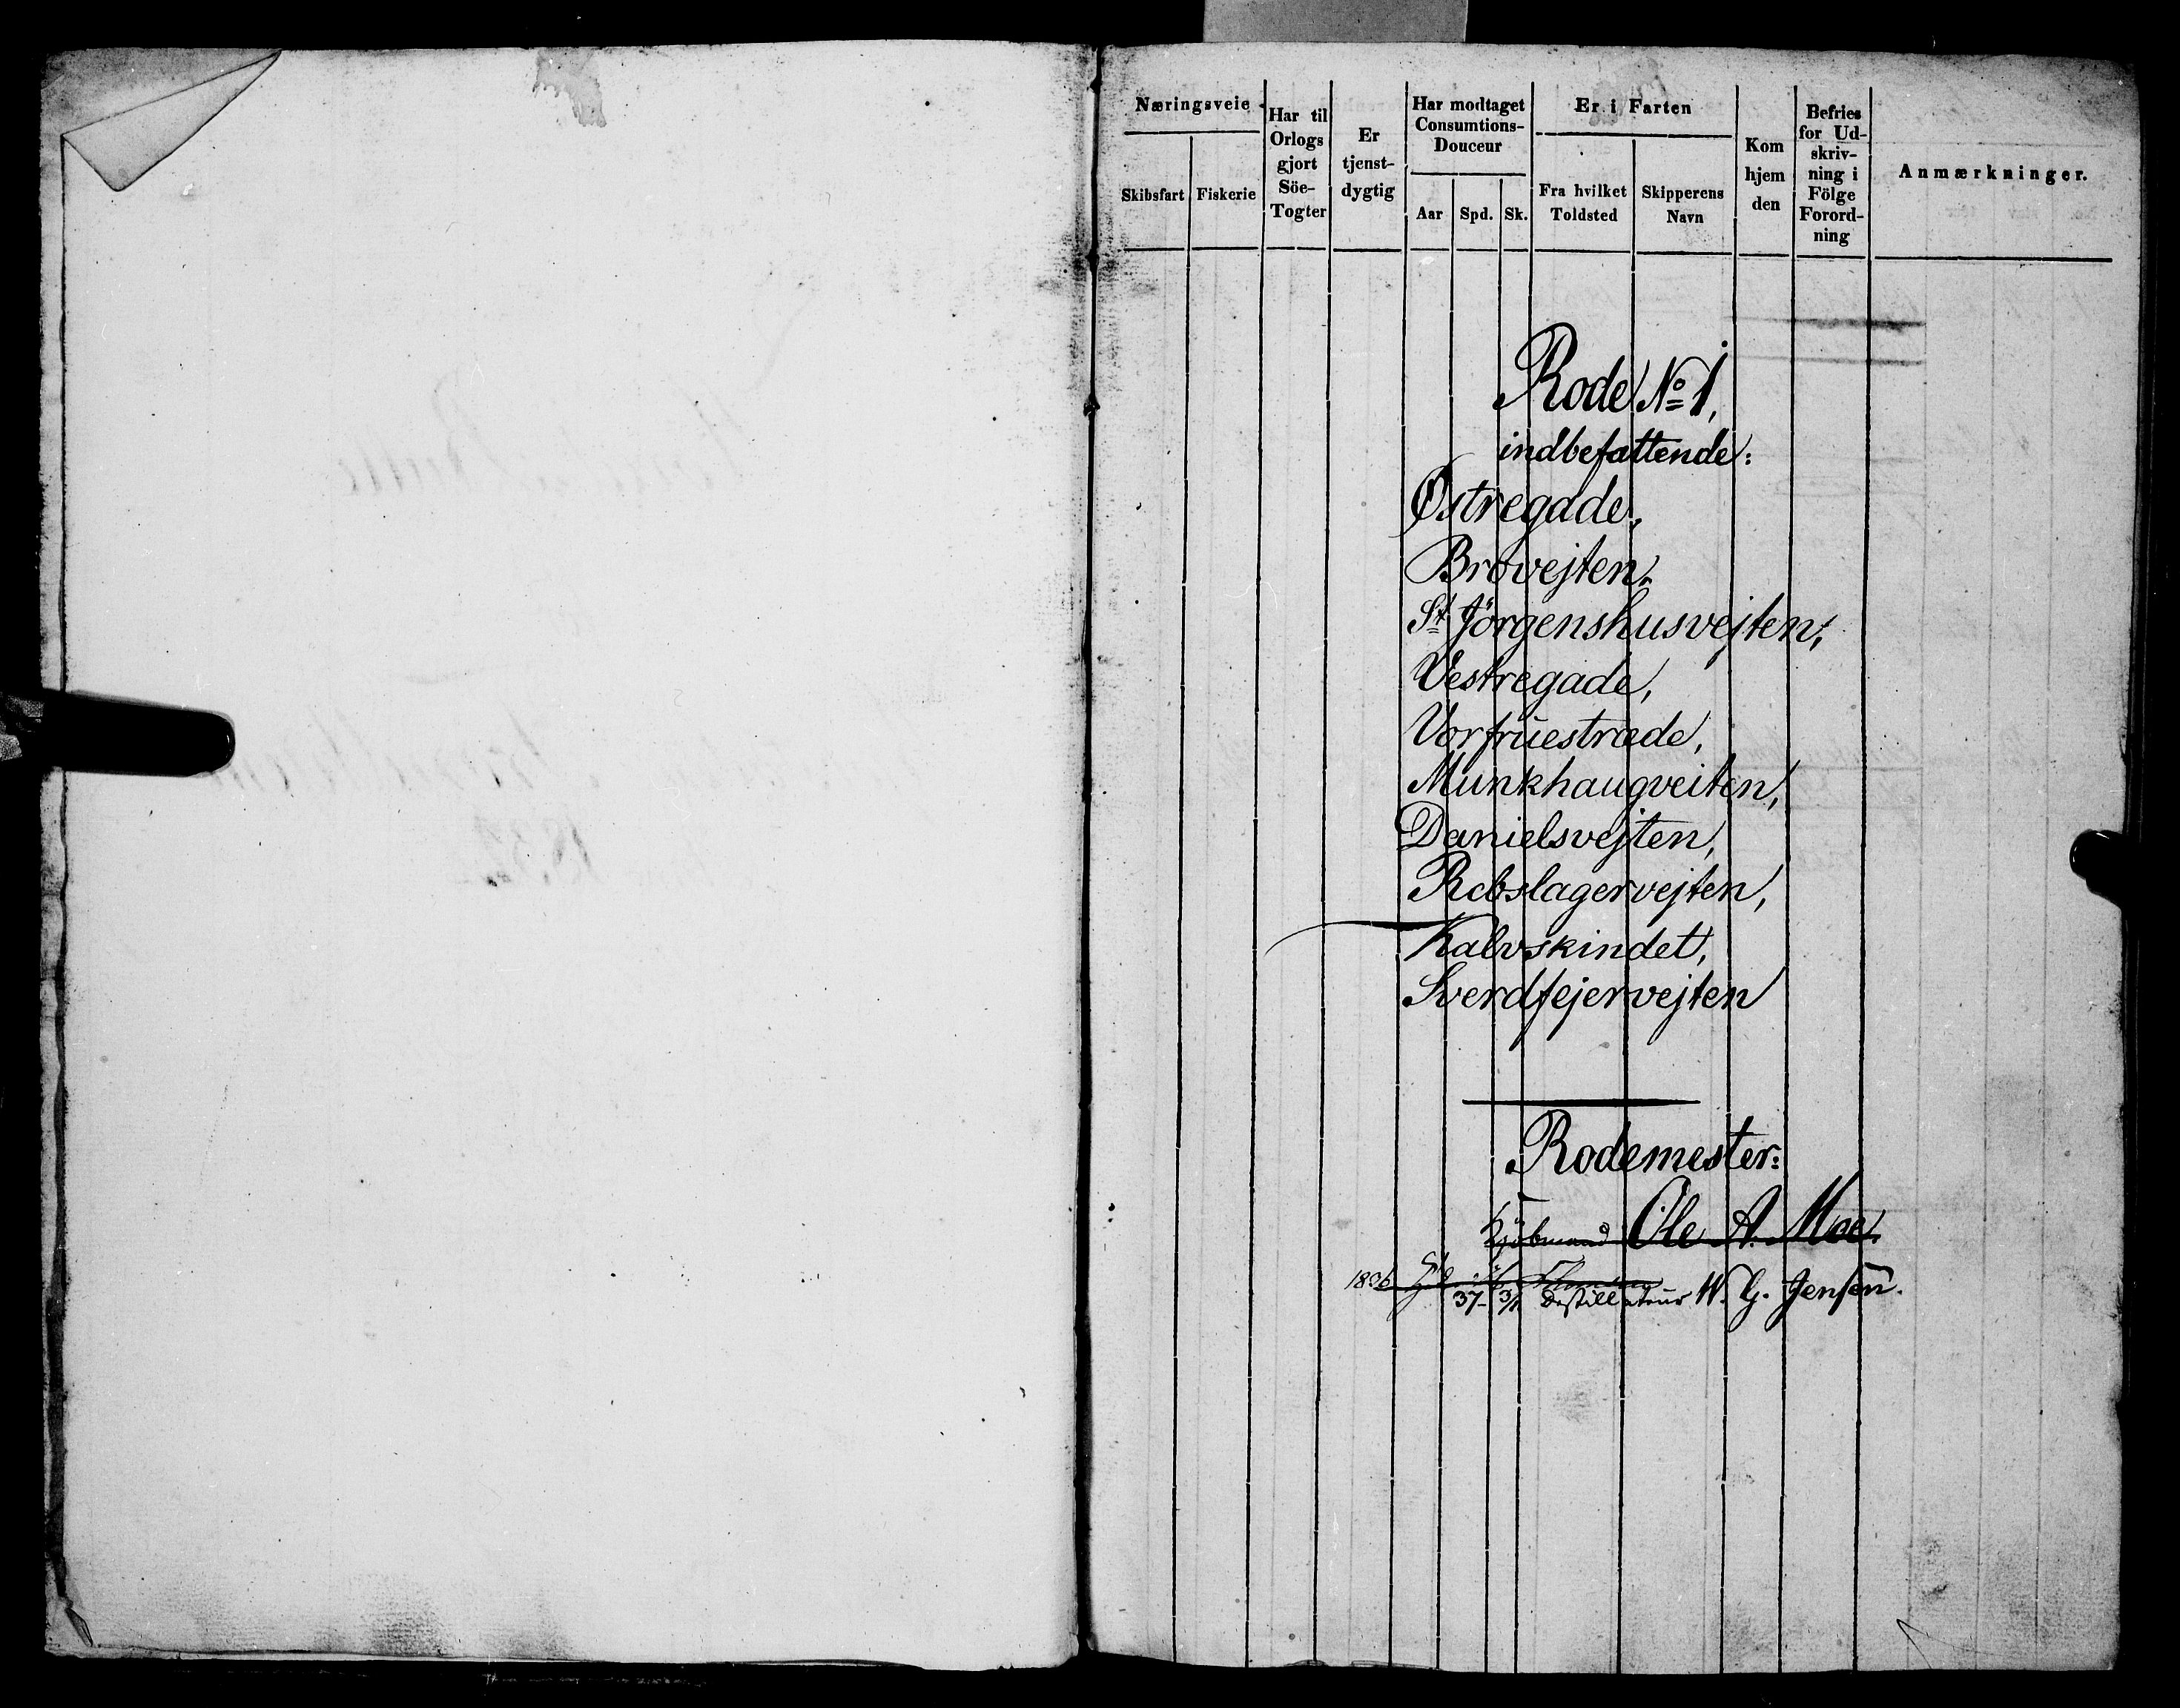 Næringsveie
Skibsfart
Fiskerie
Har til
Orlogs
gjort
Söe-
Togter
Er
tjenst-
dygtig
Har modtaget
Consumtions-
Douceur
Aar
Spd.
Sk.
Er i Farten
Fra hvilket
Toldsted
Skipperens
Navn
Kom
hjem
den
Befries
for Ud-
skriv-
ning i
Fölge
Forord-
ning
Anmærkninger.
Rode No 1,
indbefattende:
Østregade,
Brovejten,
St Jörgenshusvejten,
Vestregade,
Vorfruestræde,
Munkhaugveiten,
Danielsvejten,
Rebslagervejten,
Kalvskindet,
Sverdfejervejten
Rodemester:
Kjöbmand Ole A. Moe.
1836
37- 3/1 Destillateur W. G. Jensen.